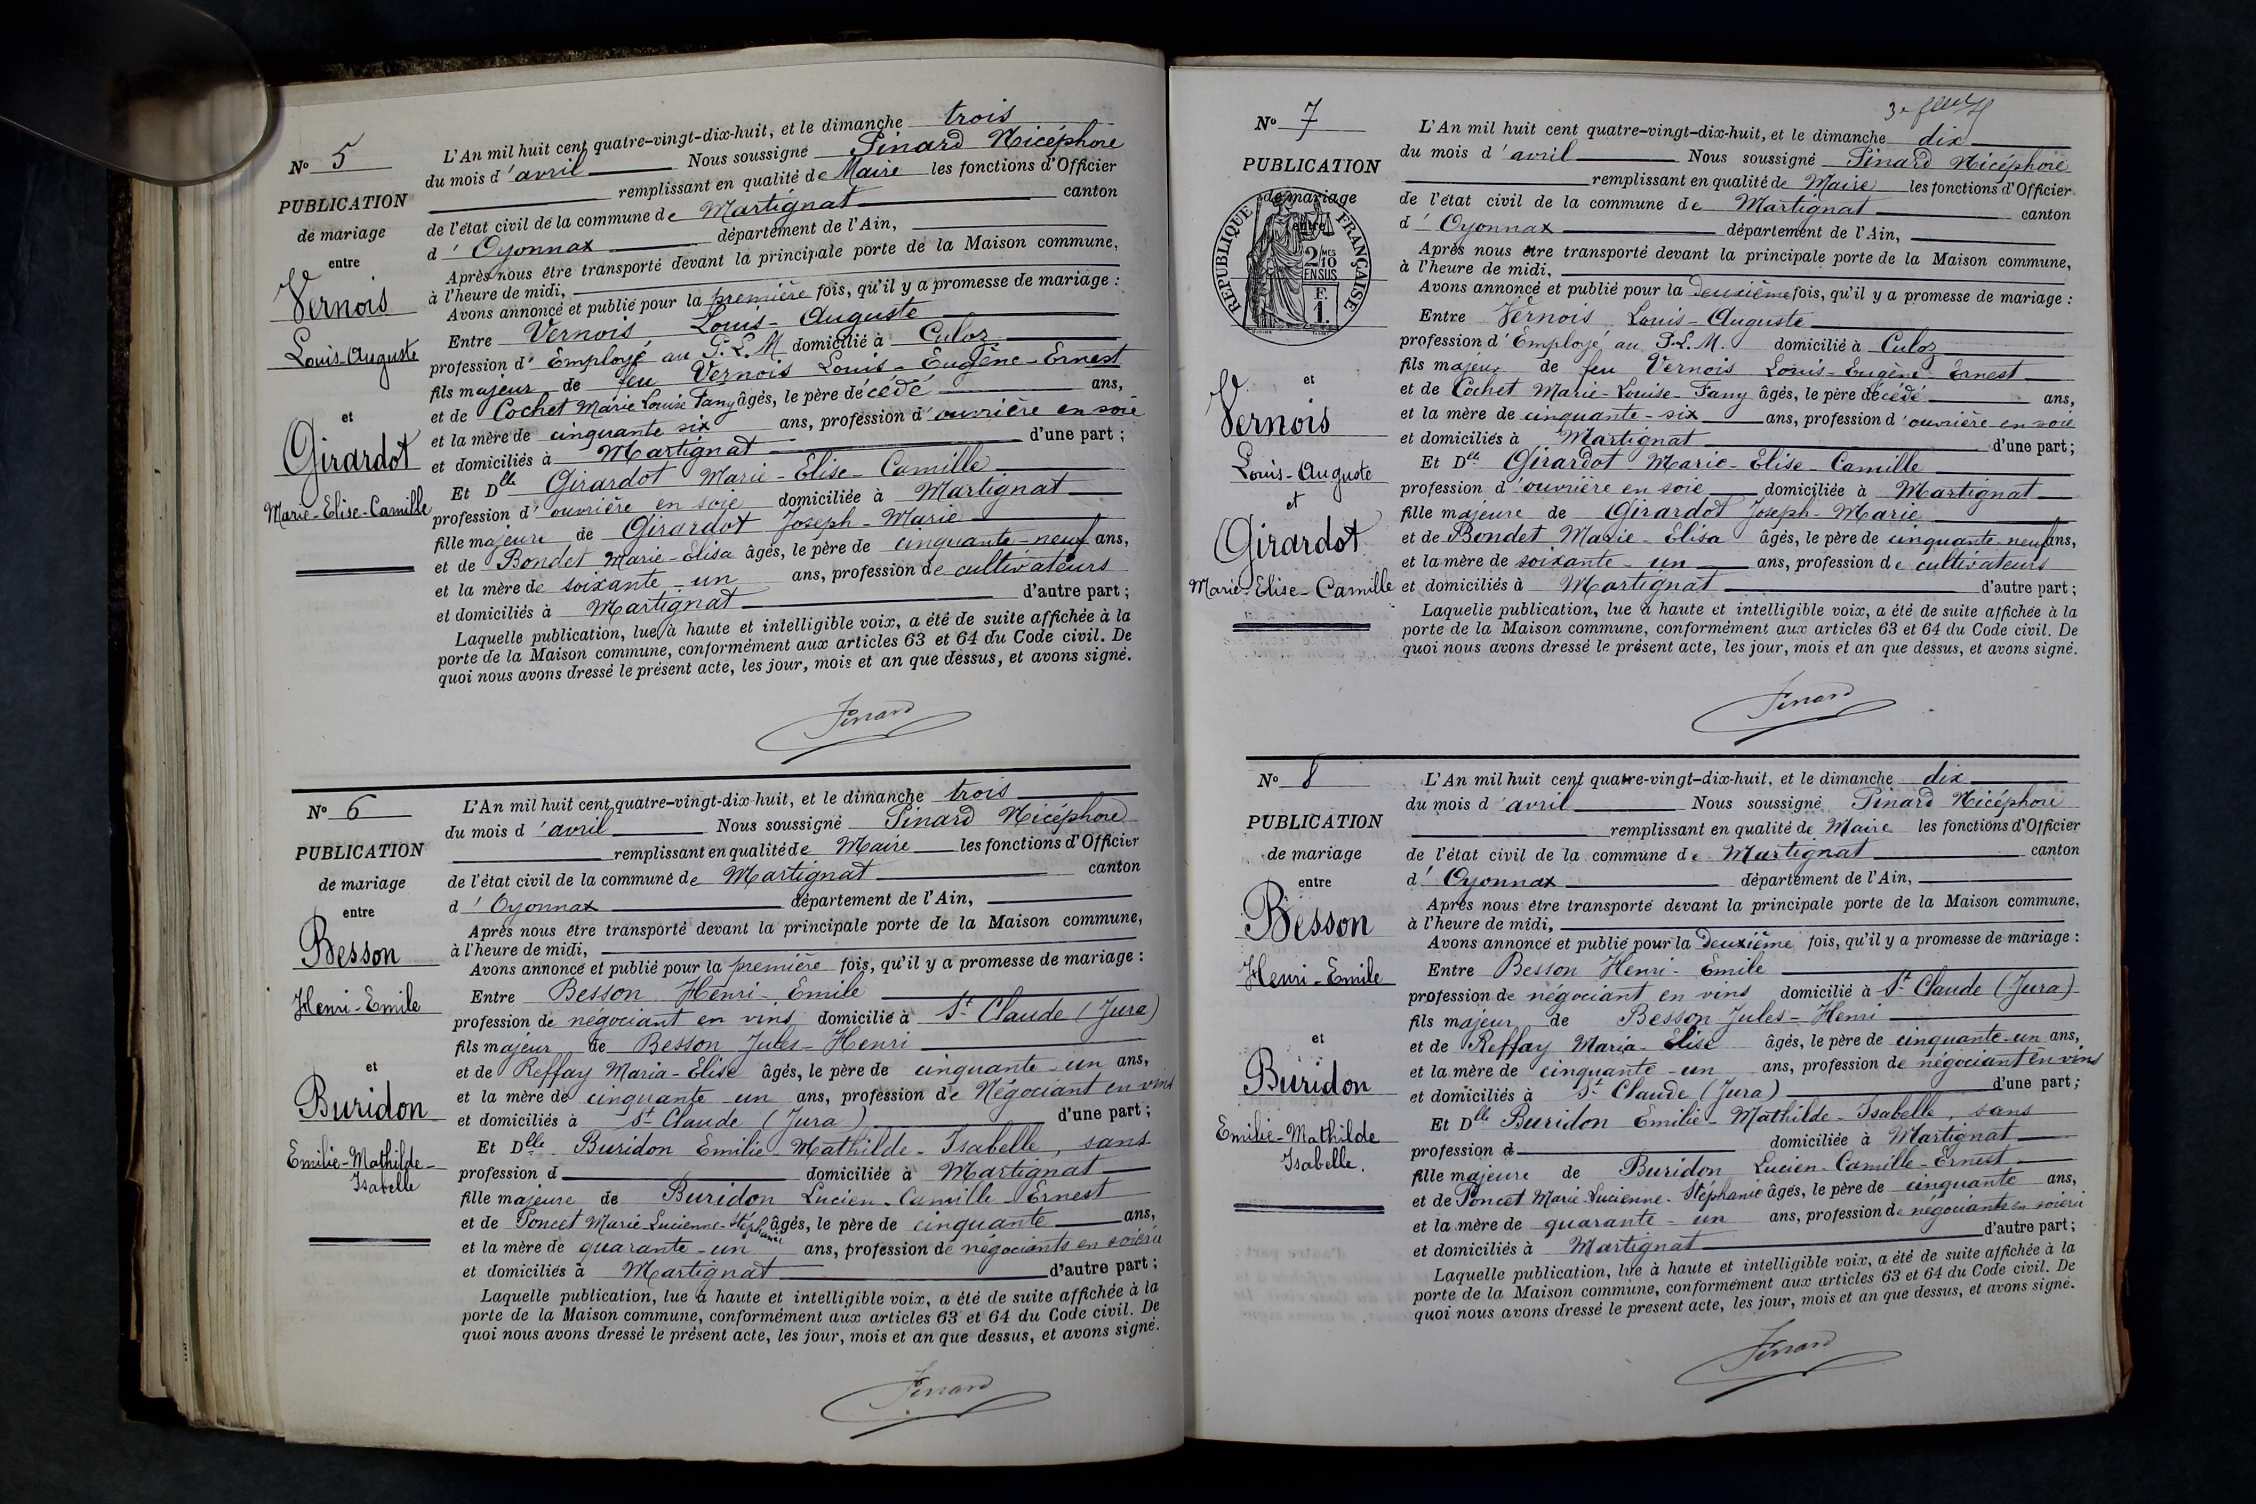 N° 5
PUBLICATION
de mariage
entre
Vernois
Louis-Auguste
et
Girardot
Marie-Elise-Camille
L'An mil huit cent quatre-vingt-dix-huit, et le dimanche trois
du mois d'avril Nous soussigné Pinard Nicéphore
remplissant en qualité de Maire les fonctions d'Officier
de l'état civil de la commune de Martignat canton
d'Oyonnax département de l'Ain,
Après nous être transporté devant la principale porte de la Maison commune,
à l'heure de midi,
Avons annoncé et publié pour la première fois, qu'il y a promesse de mariage :
Entre Vernois Louis-Auguste
profession d'Employé au P.L.M domicilié à Culoz
fils majeur de feu Vernois Louis-Eugène-Ernest
et de Cochet Marie Louise Fany âgés, le père décédé ans,
et la mère de cinquante six ans, profession d'ouvrière en soie
et domiciliés à Martignat d'une part ;
Et Dlle Girardot Marie-Elise-Camille
profession d'ouvrière en soie domiciliée à Martignat
fille majeure de Girardot Joseph-Marie
et de Bondet Marie-Elisa âgés, le père de cinquante-neuf ans,
et la mère de soixante-un ans, profession de cultivateurs
et domiciliés à Martignat d'autre part ;
Laquelle publication, lue à haute et intelligible voix, a été de suite affichée à la
porte de la Maison commune, conformément aux articles 63 et 64 du Code civil. De
quoi nous avons dressé le présent acte, les jour, mois et an que dessus, et avons signé.
Pinard
N° 6
PUBLICATION
de mariage
entre
Besson
Henri-Emile
et
Buridon
Emilie-Mathilde-
Isabelle
L'An mil huit cent quatre-vingt-dix-huit, et le dimanche trois
du mois d'avril Nous soussigné Pinard Nicéphore
remplissant en qualité de Maire les fonctions d'Officier
de l'état civil de la commune de Martignat canton
d'Oyonnax département de l'Ain,
Après nous être transporté devant la principale porte de la Maison commune,
à l'heure de midi,
Avons annoncé et publié pour la première fois, qu'il y a promesse de mariage :
Entre Besson Henri-Emile
profession de négociant en vins domicilié à St Claude (Jura)
fils majeur de Besson Jules-Henri
et de Reffay Maria-Elise âgés, le père de cinquante-un ans,
et la mère de cinquante-un ans, profession de Négociant en vins
et domiciliés à St Claude (Jura) d'une part ;
Et Dlle Buridon Emilie-Mathilde-Isabelle, sans
profession d domiciliée à Martignat
fille majeure de Buridon Lucien-Camille-Ernest
et de Poncet Marie Lucienne-Stéphanie âgés, le père de cinquante ans,
et la mère de quarante-un ans, profession de négociants en soierie
et domiciliés à Martignat d'autre part ;
Laquelle publication, lue à haute et intelligible voix, a été de suite affichée à la
porte de la Maison commune, conformément aux articles 63 et 64 du Code civil. De
quoi nous avons dressé le présent acte, les jour, mois et an que dessus, et avons signé.
Pinard
3e
N° 7
PUBLICATION
de mariage
entre
RÉPUBLIQUE FRANÇAISE
2/10 MES
EN SUS
F.
1.
et
Vernois
Louis-Auguste
et
Girardot
Marie-Elise-Camille
L'An mil huit cent quatre-vingt-dix-huit, et le dimanche dix
du mois d'avril Nous soussigné Pinard Nicéphore
remplissant en qualité de Maire les fonctions d'Officier
de l'état civil de la commune de Martignat canton
d'Oyonnax département de l'Ain,
Après nous être transporté devant la principale porte de la Maison commune,
à l'heure de midi,
Avons annoncé et publié pour la deuxième fois, qu'il y a promesse de mariage :
Entre Vernois Louis-Auguste
profession d'Employé au P.L.M. domicilié à Culoz
fils majeur de feu Vernois Louis-Eugène-Ernest
et de Cochet Marie-Louise-Fany âgés, le père décédé ans,
et la mère de cinquante-six ans, profession d'ouvrière en soie
et domiciliés à Martignat d'une part ;
Et Dlle Girardot Marie-Elise-Camille
profession d'ouvrière en soie domiciliée à Martignat
fille majeure de Girardot Joseph-Marie
et de Bondet Marie-Elisa âgés, le père de cinquante-neuf ans,
et la mère de soixante-un ans, profession de cultivateurs
et domiciliés à Martignat d'autre part ;
Laquelle publication, lue à haute et intelligible voix, a été de suite affichée à la
porte de la Maison commune, conformément aux articles 63 et 64 du Code civil. De
quoi nous avons dressé le présent acte, les jour, mois et an que dessus, et avons signé.
Pinard
N° 8
PUBLICATION
de mariage
entre
Besson
Henri-Emile
et
Buridon
Emilie-Mathilde
Isabelle.
L'An mil huit cent quatre-vingt-dix-huit, et le dimanche dix
du mois d'avril Nous soussigné Pinard Nicéphore
remplissant en qualité de Maire les fonctions d'Officier
de l'état civil de la commune de Martignat canton
d'Oyonnax département de l'Ain,
Après nous être transporté devant la principale porte de la Maison commune,
à l'heure de midi,
Avons annoncé et publié pour la deuxième fois, qu'il y a promesse de mariage :
Entre Besson Henri-Emile
profession de négociant en vins domicilié à St Claude (Jura)
fils majeur de Besson Jules-Henri
et de Reffay Maria-Elise âgés, le père de cinquante-un ans,
et la mère de cinquante-un ans, profession de négociant en vins
et domiciliés à St Claude (Jura) d'une part ;
Et Dlle Buridon Emilie-Mathilde-Isabelle, sans
profession d domiciliée à Martignat
fille majeure de Buridon Lucien-Camille-Ernest
et de Poncet Marie-Lucienne-Stéphanie âgés, le père de cinquante ans,
et la mère de quarante-un ans, profession de négociants en soierie
et domiciliés à Martignat d'autre part ;
Laquelle publication, lue à haute et intelligible voix, a été de suite affichée à la
porte de la Maison commune, conformément aux articles 63 et 64 du Code civil. De
quoi nous avons dressé le présent acte, les jour, mois et an que dessus, et avons signé.
Pinard